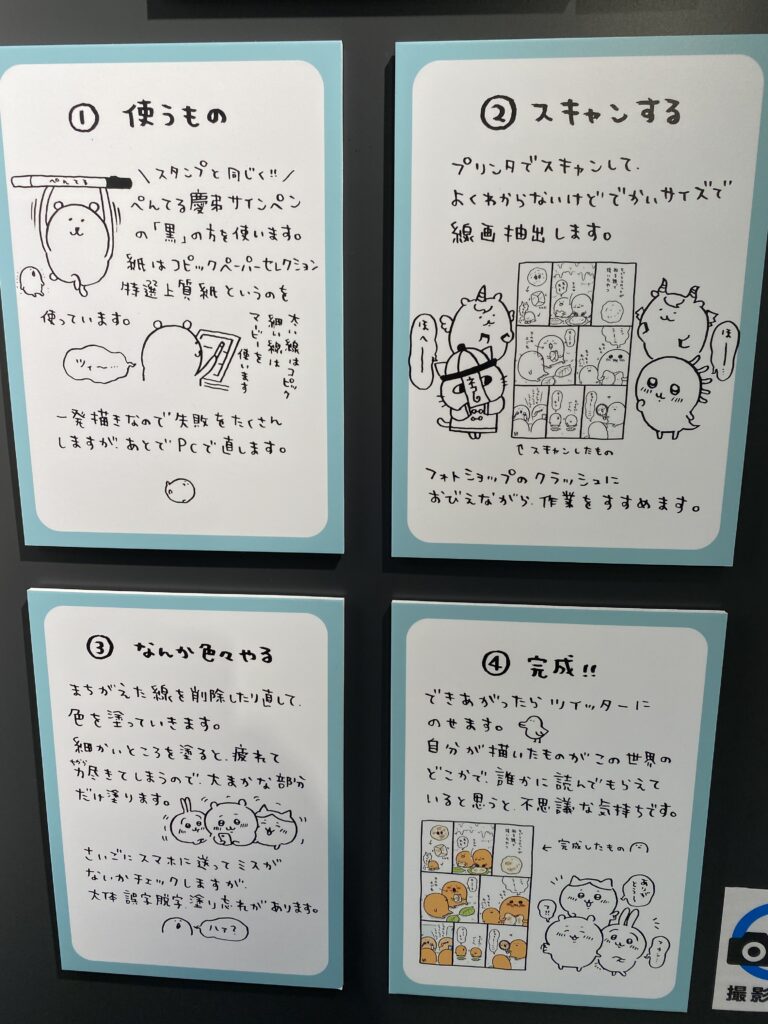 ① 使うもの
ぺんてる
\ スタンプと同じく!! /
ぺんてる慶弔サインペン
の「黒」の方を使います。
紙はコピックペーパーセレクション
特選上質紙というのを
使っています。
太い線はコピック
細い線は
マービーを
使います
ツィ〜…
一発描きなので失敗をたくさん
しますが、あとでPCで直します。
② スキャンする
プリンタでスキャンして、
よくわからないけどでかいサイズで
線画抽出します。
ほへー
ほー
↑スキャンしたもの
フォトショップのクラッシュに
おびえながら、作業をすすめます。
③ なんか色々やる
まちがえた線を削除したり直して、
色を塗っていきます。
細かいところを塗ると、疲れて
力尽きてしまうので、大まかな部分
だけ塗ります。
さいごにスマホに送ってミスが
ないかチェックしますが、
大体誤字脱字、塗り忘れがあります。
ハテ?
④ 完成!!
できあがったらツイッターに
のせます。
自分が描いたものがこの世界の
どこかで、誰かに読んでもらえて
いると思うと、不思議な気持ちです。
← 完成したもの
ありがとうー
撮影